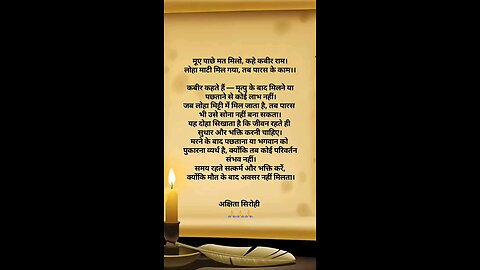 मूए पाछे मत मिलो, कहे कबीर राम।
लोहा माटी मिल गया, तब पारस के काम।।
कबीर कहते हैं — मृत्यु के बाद मिलने या
पछताने से कोई लाभ नहीं।
जब लोहा मिट्टी में मिल जाता है, तब पारस
भी उसे सोना नहीं बना सकता।
यह दोहा सिखाता है कि जीवन रहते ही
सुधार और भक्ति करनी चाहिए।
मरने के बाद पछताना या भगवान को
पुकारना व्यर्थ है, क्योंकि तब कोई परिवर्तन
संभव नहीं।
समय रहते सत्कर्म और भक्ति करें,
क्योंकि मौत के बाद अवसर नहीं मिलता।
अक्षिता सिरोही